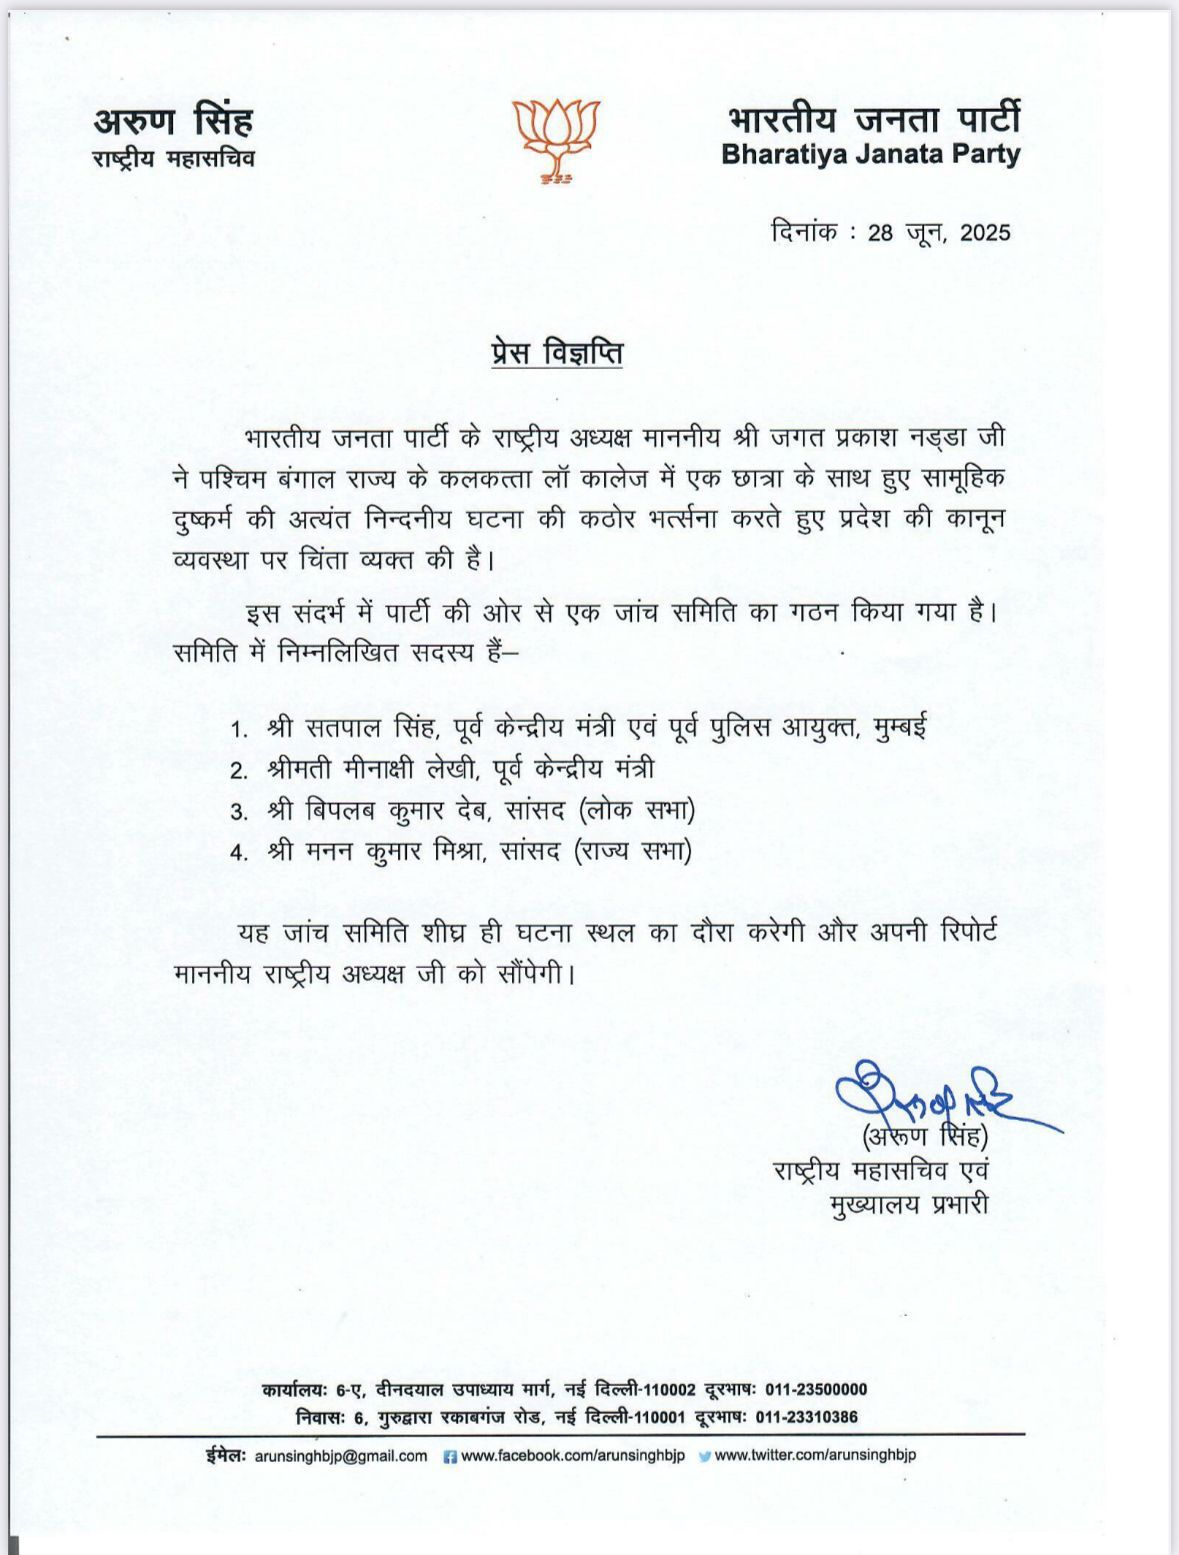 अरुण सिंह
राष्ट्रीय महासचिव
भारतीय जनता पार्टी
Bharatiya Janata Party
दिनांक : 28 जून, 2025
प्रेस विज्ञप्ति
भारतीय जनता पार्टी के राष्ट्रीय अध्यक्ष माननीय श्री जगत प्रकाश नड्डा जी
ने पश्चिम बंगाल राज्य के कलकत्ता लॉ कालेज में एक छात्रा के साथ हुए सामूहिक
दुष्कर्म की अत्यंत निन्दनीय घटना की कठोर भर्त्सना करते हुए प्रदेश की कानून
व्यवस्था पर चिंता व्यक्त की है।
इस संदर्भ में पार्टी की ओर से एक जांच समिति का गठन किया गया है।
समिति में निम्नलिखित सदस्य हैं–
1. श्री सतपाल सिंह, पूर्व केन्द्रीय मंत्री एवं पूर्व पुलिस आयुक्त, मुम्बई
2. श्रीमती मीनाक्षी लेखी, पूर्व केन्द्रीय मंत्री
3. श्री बिपलब कुमार देब, सांसद (लोक सभा)
4. श्री मनन कुमार मिश्रा, सांसद (राज्य सभा)
यह जांच समिति शीघ्र ही घटना स्थल का दौरा करेगी और अपनी रिपोर्ट
माननीय राष्ट्रीय अध्यक्ष जी को सौंपेगी।
(अरूण सिंह)
राष्ट्रीय महासचिव एवं
मुख्यालय प्रभारी
कार्यालयः 6-ए, दीनदयाल उपाध्याय मार्ग, नई दिल्ली-110002 दूरभाषः 011-23500000
निवासः 6, गुरुद्वारा रकाबगंज रोड, नई दिल्ली-110001 दूरभाषः 011-23310386
ईमेलः arunsinghbjp@gmail.com www.facebook.com/arunsinghbjp www.twitter.com/arunsinghbjp